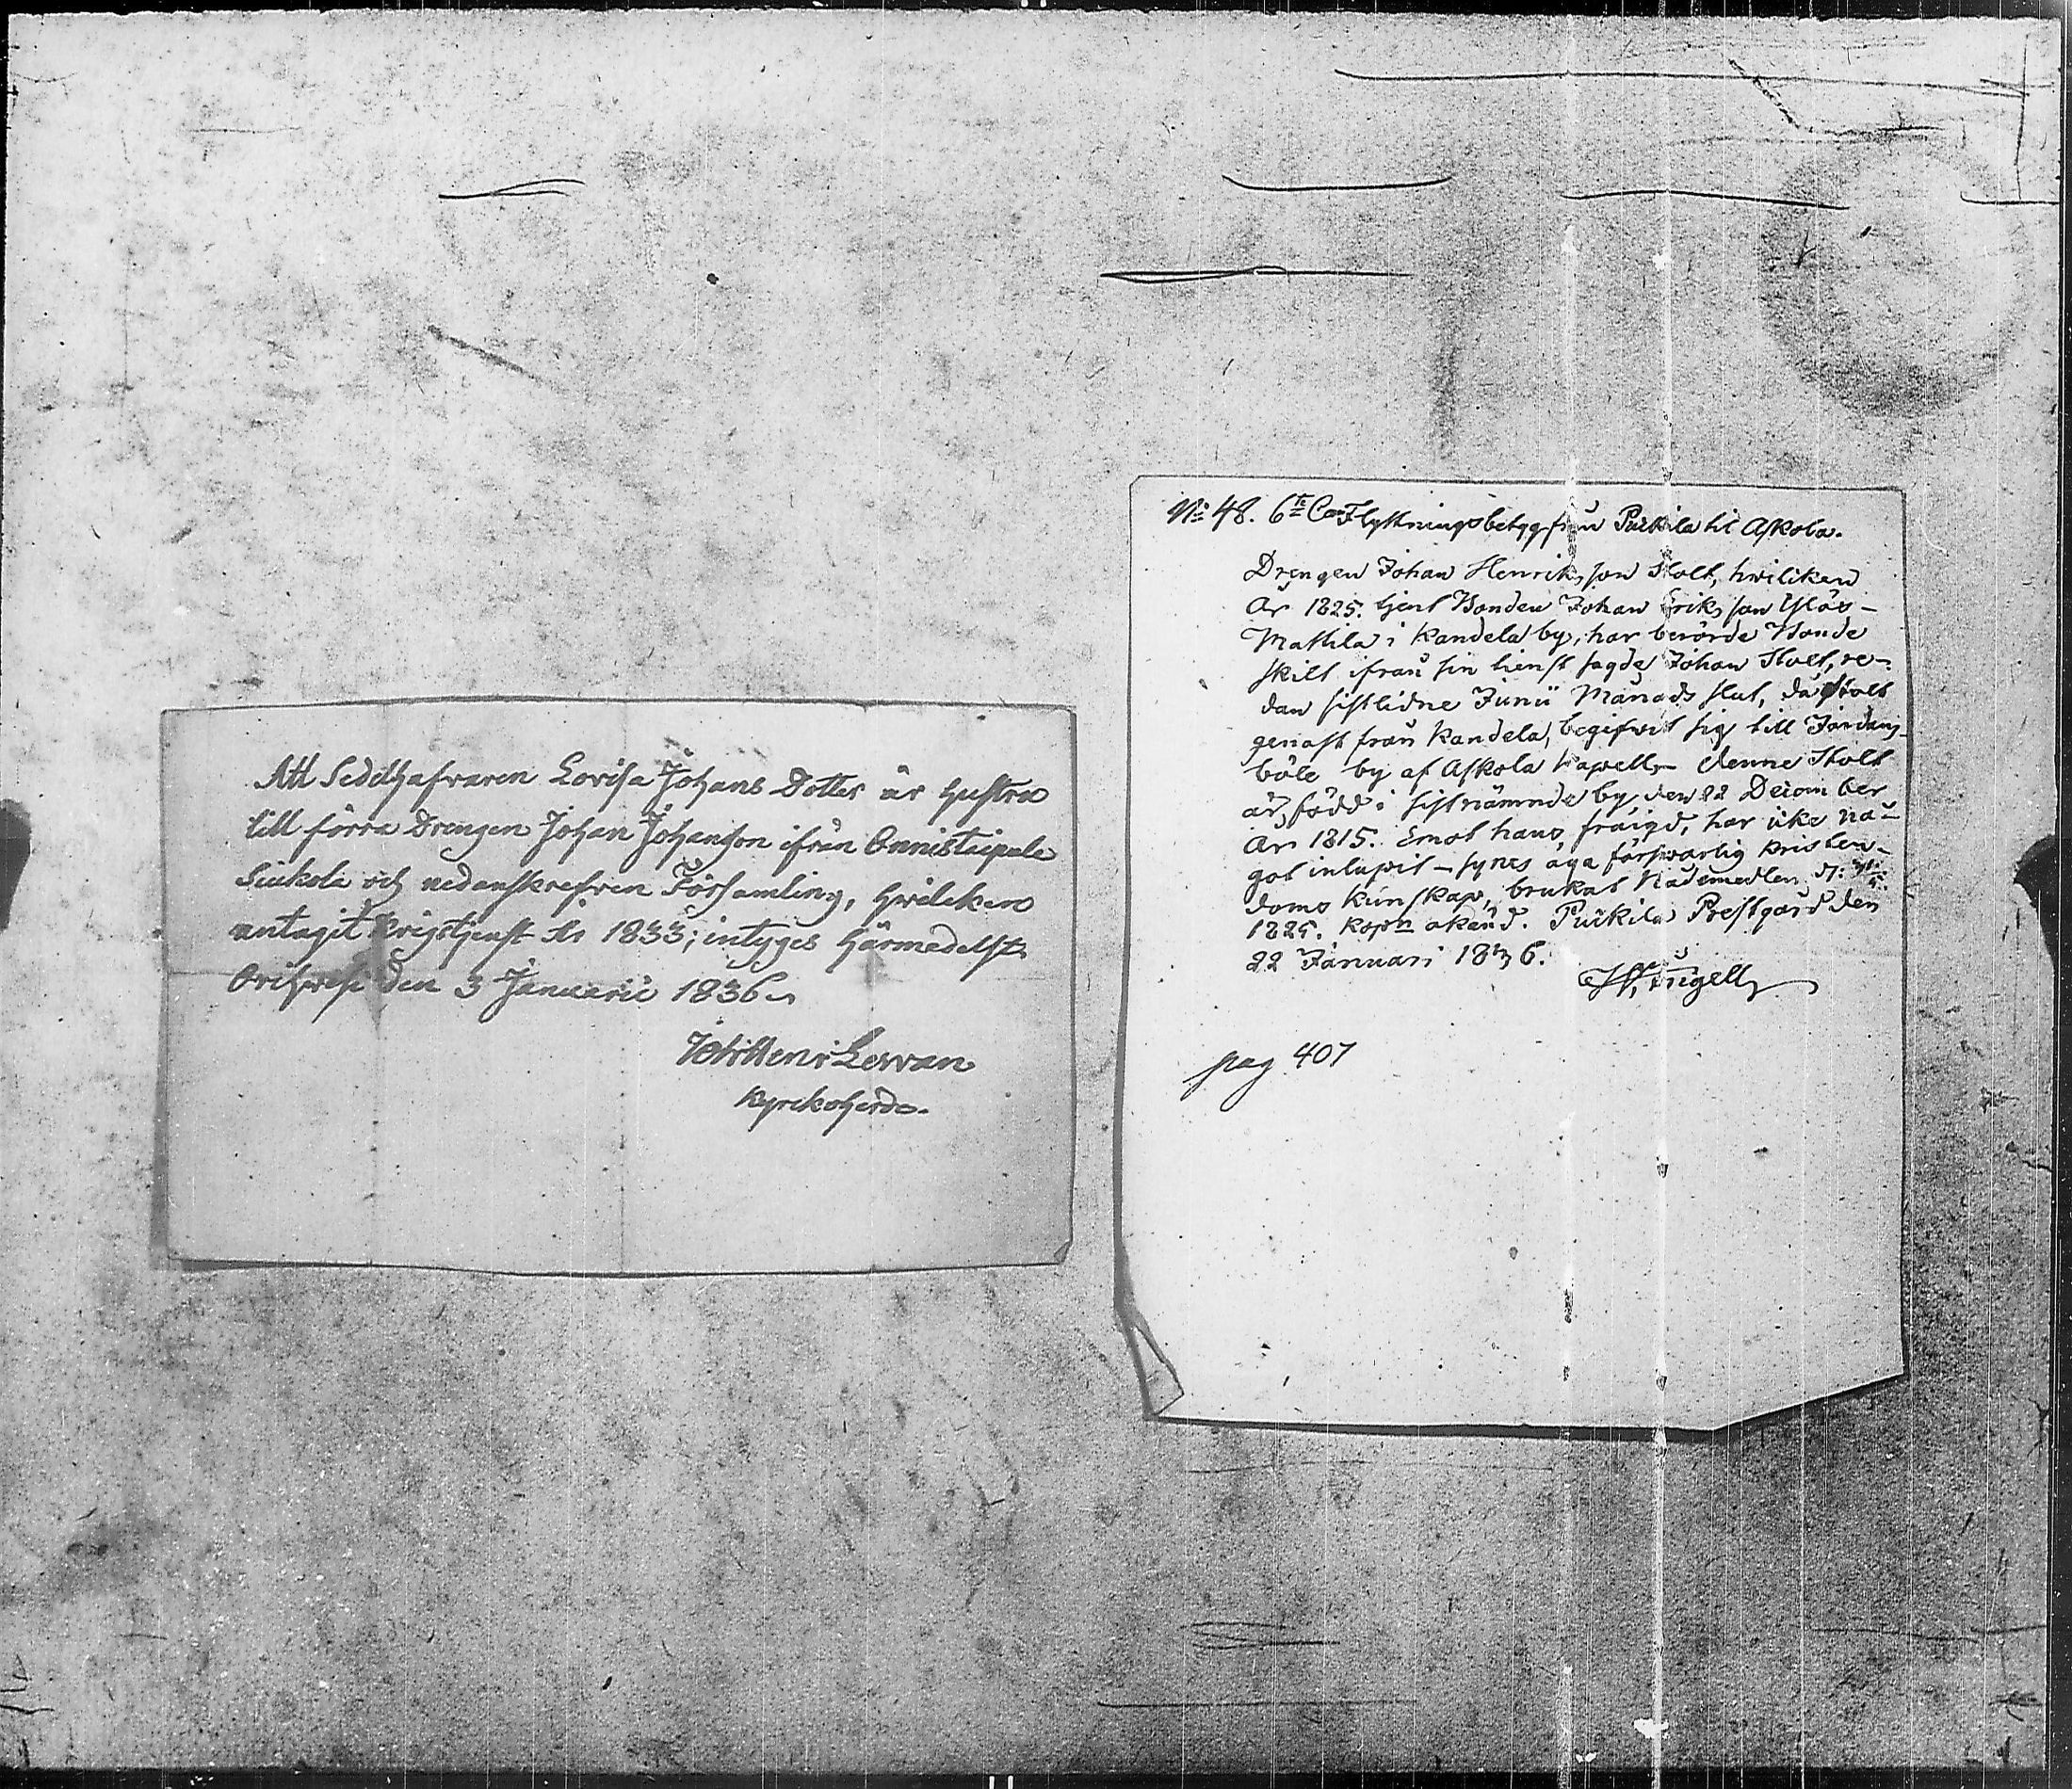 Att Sedelhafvaren Lovisa Johans Dotter är hustru
till förra Drengen Johan Johanson ifrån Onnistaipale
Suikola och nedanskrefven Församling, hvilcken
antagit Krigstjenst År 1833; intyges härmedelst.
Orihvesi den 3 Januarii 1836.
Kyrckoherde.
No 48. 6te Flyttningsbetyg från Pukkila til Askola.
Drengen Johan Henriksson Stolt, hviliken
År 1825. tjent Bonden Johan Eriksson Yläs-
Mattila i Kandela by, har berörde Bonde
skilt ifrån sin tienst sagde Johan Stolt, re-
dan sistlidne Junii Månads slut, då Stolt
genast från Kandela, begifvit sig till Jordans-
böle by af Askola Kapell – denne Stolt
är född i sistnämnde by den 22 December
År 1815. Emot hans frägd, har icke nå-
got inlupit – synes äga försvarlig kristen-
doms kunskap, brukat Nådemedlen d:
1825. Kopn okänd. Pukkila Prestgård den
22 Januari 1836.
pag 407